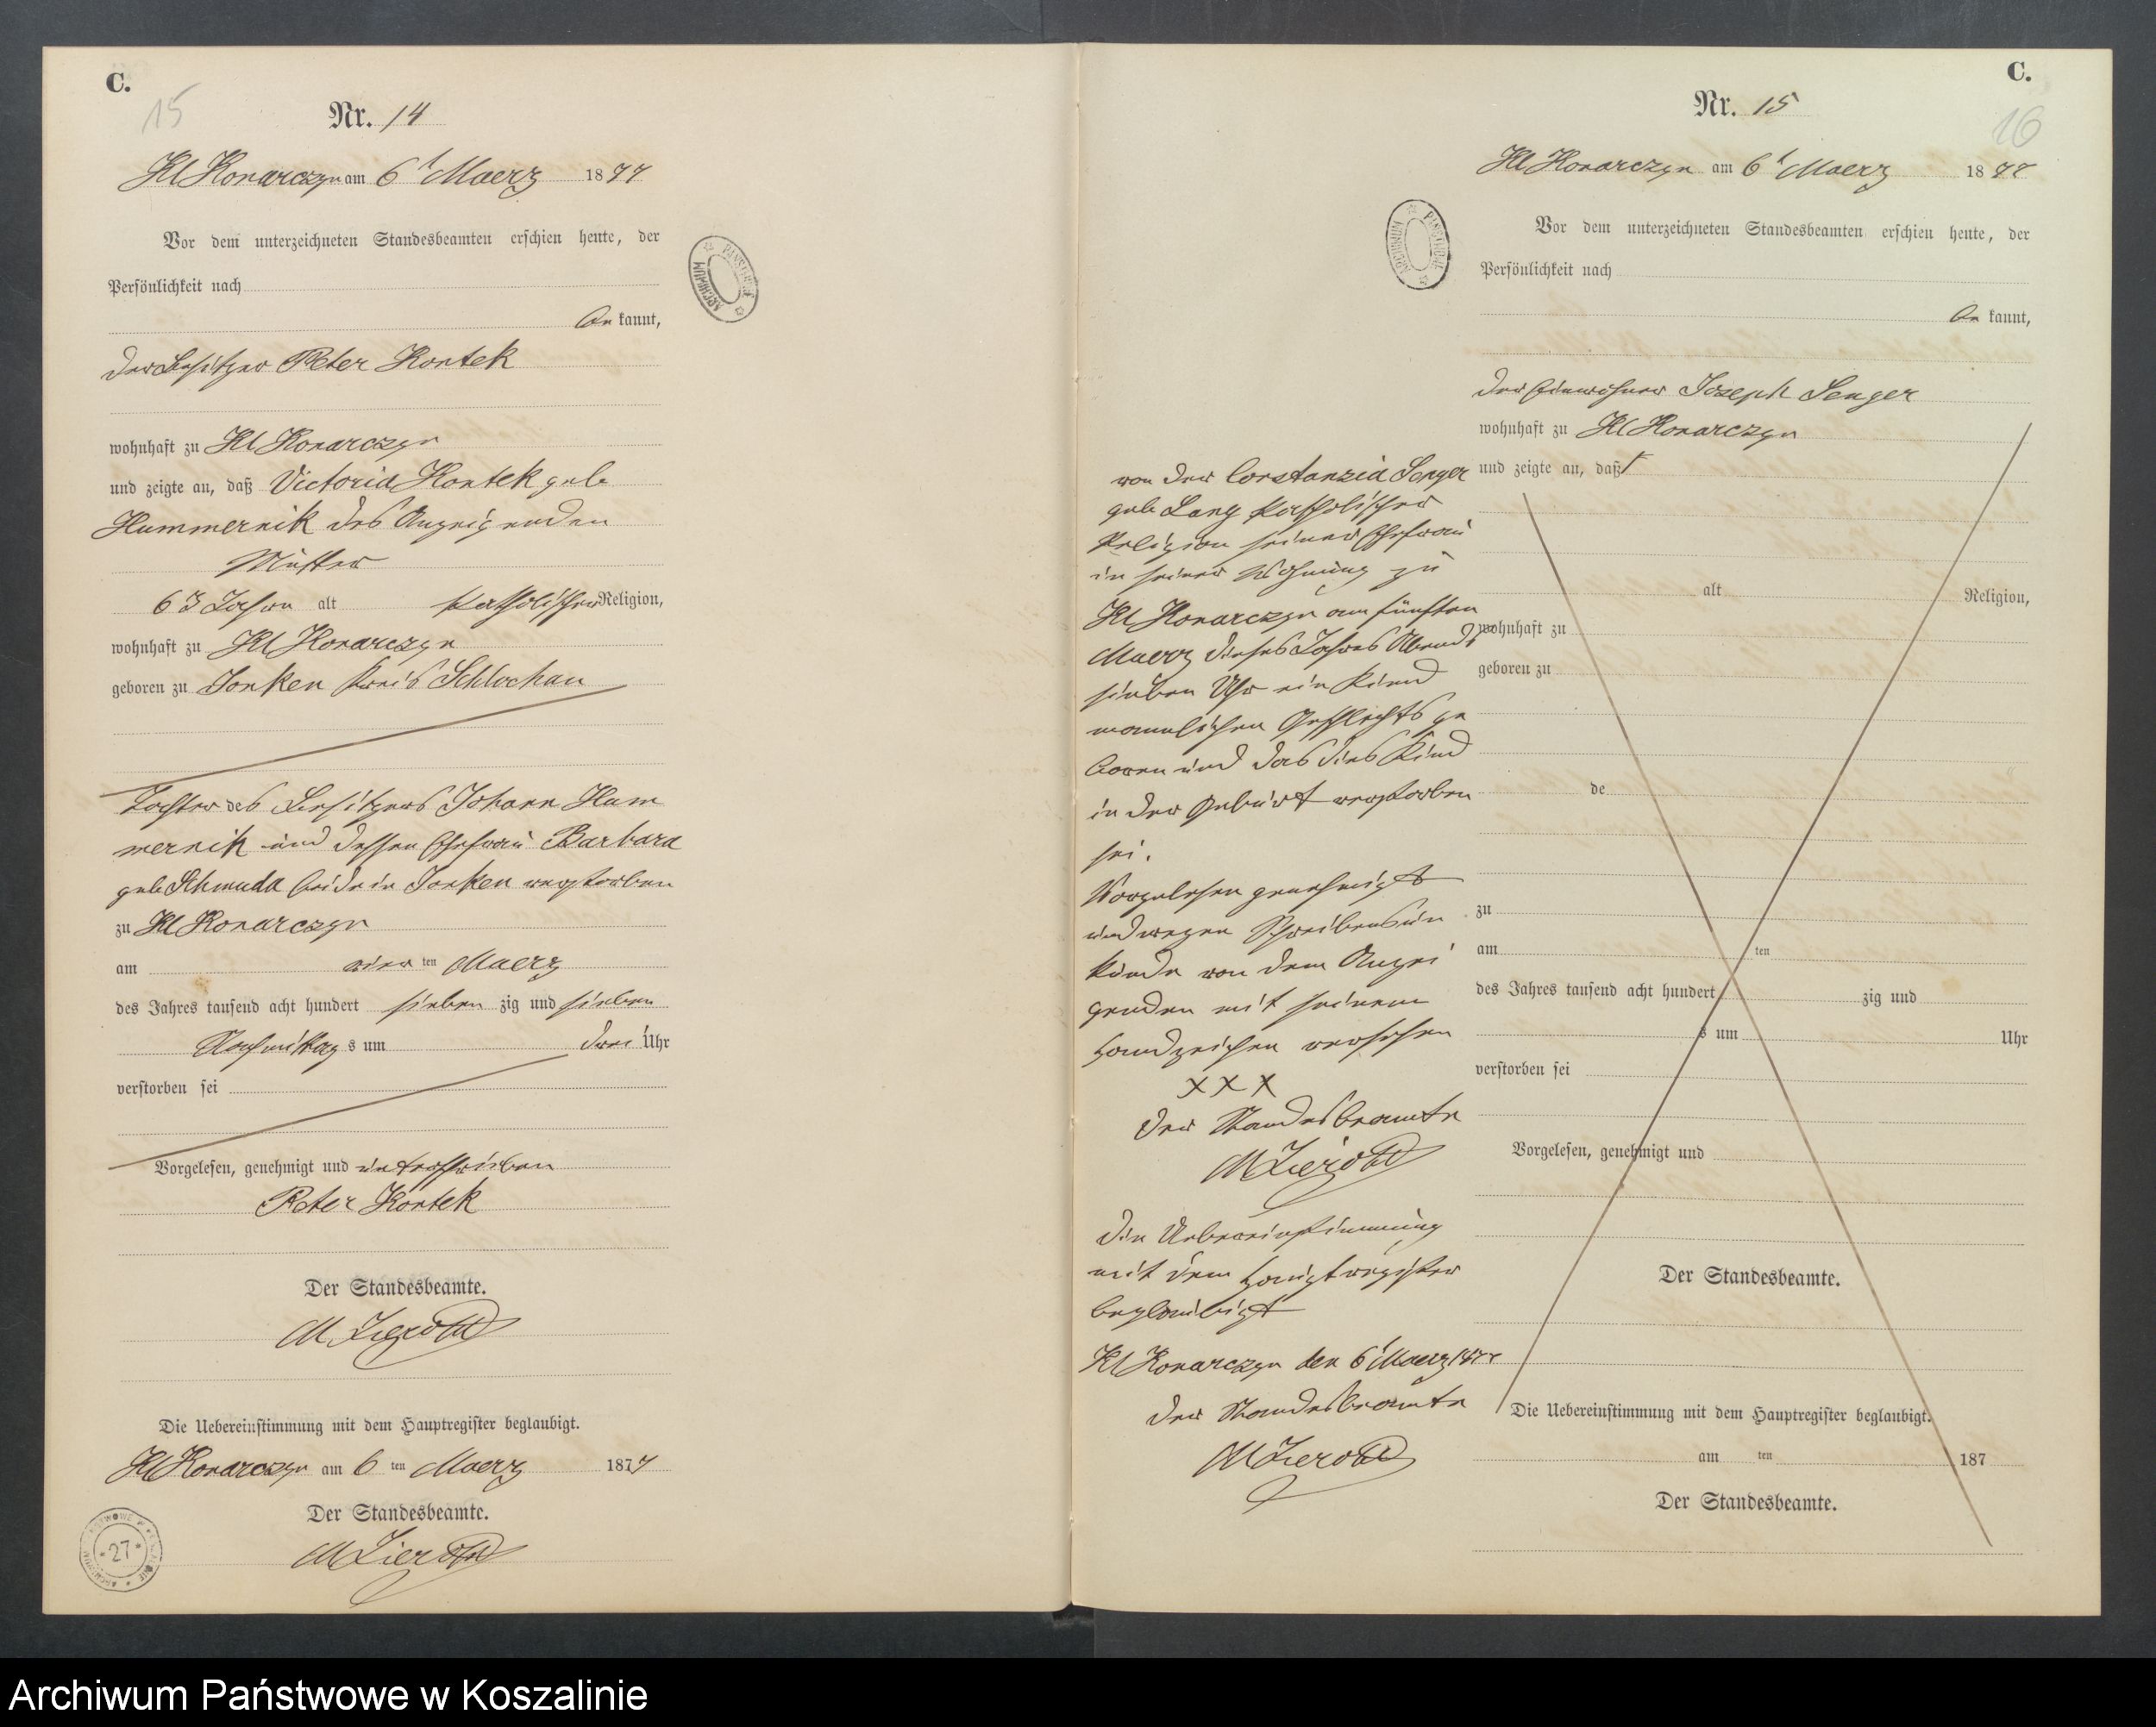 C.
15
Nr. 14
Kl Konarczyn am 6t Maerz 1877
Vor dem unterzeichneten Standesbeamten erschien heute, der
Persönlichkeit nach
be kannt,
der Besitzer Peter Kontek
wohnhaft zu Kl Konarczyn
und zeigte an, daß Victoria Kontek geb
Hummernik des Anzeigenden
Mutter
63 Jahre alt katholischer Religion,
wohnhaft zu Kl Konarczyn
geboren zu Sonken Kreis Schlochau
Tochter des Besitzers Johann Hum
mernik und dessen Ehefrau Barbara
geb Schmuda beide in Sonken verstorben
zu Kl Konarczyn
am vier ten Maerz
des Jahres tausend acht hundert sieben zig und sieben
Nachmittag s um drei Uhr
verstorben sei
Vorgelesen, genehmigt und unterschrieben
Peter Kontek
Der Standesbeamte.
Die Uebereinstimmung mit dem Hauptregister beglaubigt.
Kl Konarczyn am 6 ten Maerz 1877
Der Standesbeamte.
27
ARCHIWUM PAŃSTWOWE
C.
16
Nr. 15
Kl Konarczyn am 6t Maerz 1877
Vor dem unterzeichneten Standesbeamten erschien heute, der
Persönlichkeit nach
be kannt,
der Einwohner Joseph Senger
wohnhaft zu Kl Konarczyn
und zeigte an, daß
von der Constanzia Senger
geb Lang katholischer
Religion seiner Ehefrau
in seiner Wohnung zu
Kl Konarczyn am fünften
Maerz dieses Jahres Abends
sieben Uhr ein Kind
mannlichen Geschlechts ge
boren und das dies Kind
in der Geburt verstorben
sei.
Vorgelesen genehmigt
und wegen Schreibensun
kunde von dem Anzei
genden mit seinem
Handzeichen versehen
XXX
Der Standesbeamte
Die Uebereinstimmung
mit dem Hauptregister
beglaubigt
Kl Konarczyn den 6t Maerz 1877
Der Standesbeamte
alt Religion,
wohnhaft zu
geboren zu
de
zu
am ten
des Jahres tausend acht hundert zig und
s um Uhr
verstorben sei
Vorgelesen, genehmigt und
Der Standesbeamte.
Die Uebereinstimmung mit dem Hauptregister beglaubigt.
am ten 187
Der Standesbeamte.
Archiwum Państwowe w Koszalinie